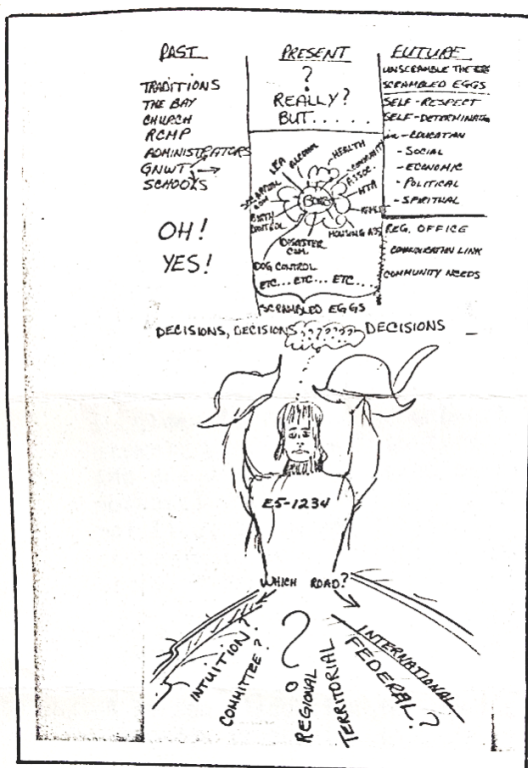 PAST
TRADITIONS
THE BAY
CHURCH
RCMP
ADMINISTRATORS
GNWT
SCHOOLS
OH!
YES!
PRESENT
?
REALLY?
BUT.....
HEALTH
COMMUNITY
ASSOC.
HTA
HOUSING ASS
DISASTER
COM.
DOG CONTROL
BIRTH
CONTROL
LEA
ALCOHOL
ETC... ETC... ETC...
SCRAMBLED EGGS
FUTURE
UNSCRAMBLE THE
SCRAMBLED EGGS
SELF-RESPECT
SELF-DETERMINATION
in - EDUCATION
- SOCIAL
- ECONOMIC
- POLITICAL
- SPIRITUAL
REG. OFFICE
COMMUNICATION LINK
COMMUNITY NEEDS
DECISIONS, DECISIONS, ?????? DECISIONS
E5-1234
WHICH ROAD?
INTUITION?
COMMITTEE?
?
REGIONAL
TERRITORIAL
INTERNATIONAL
FEDERAL?